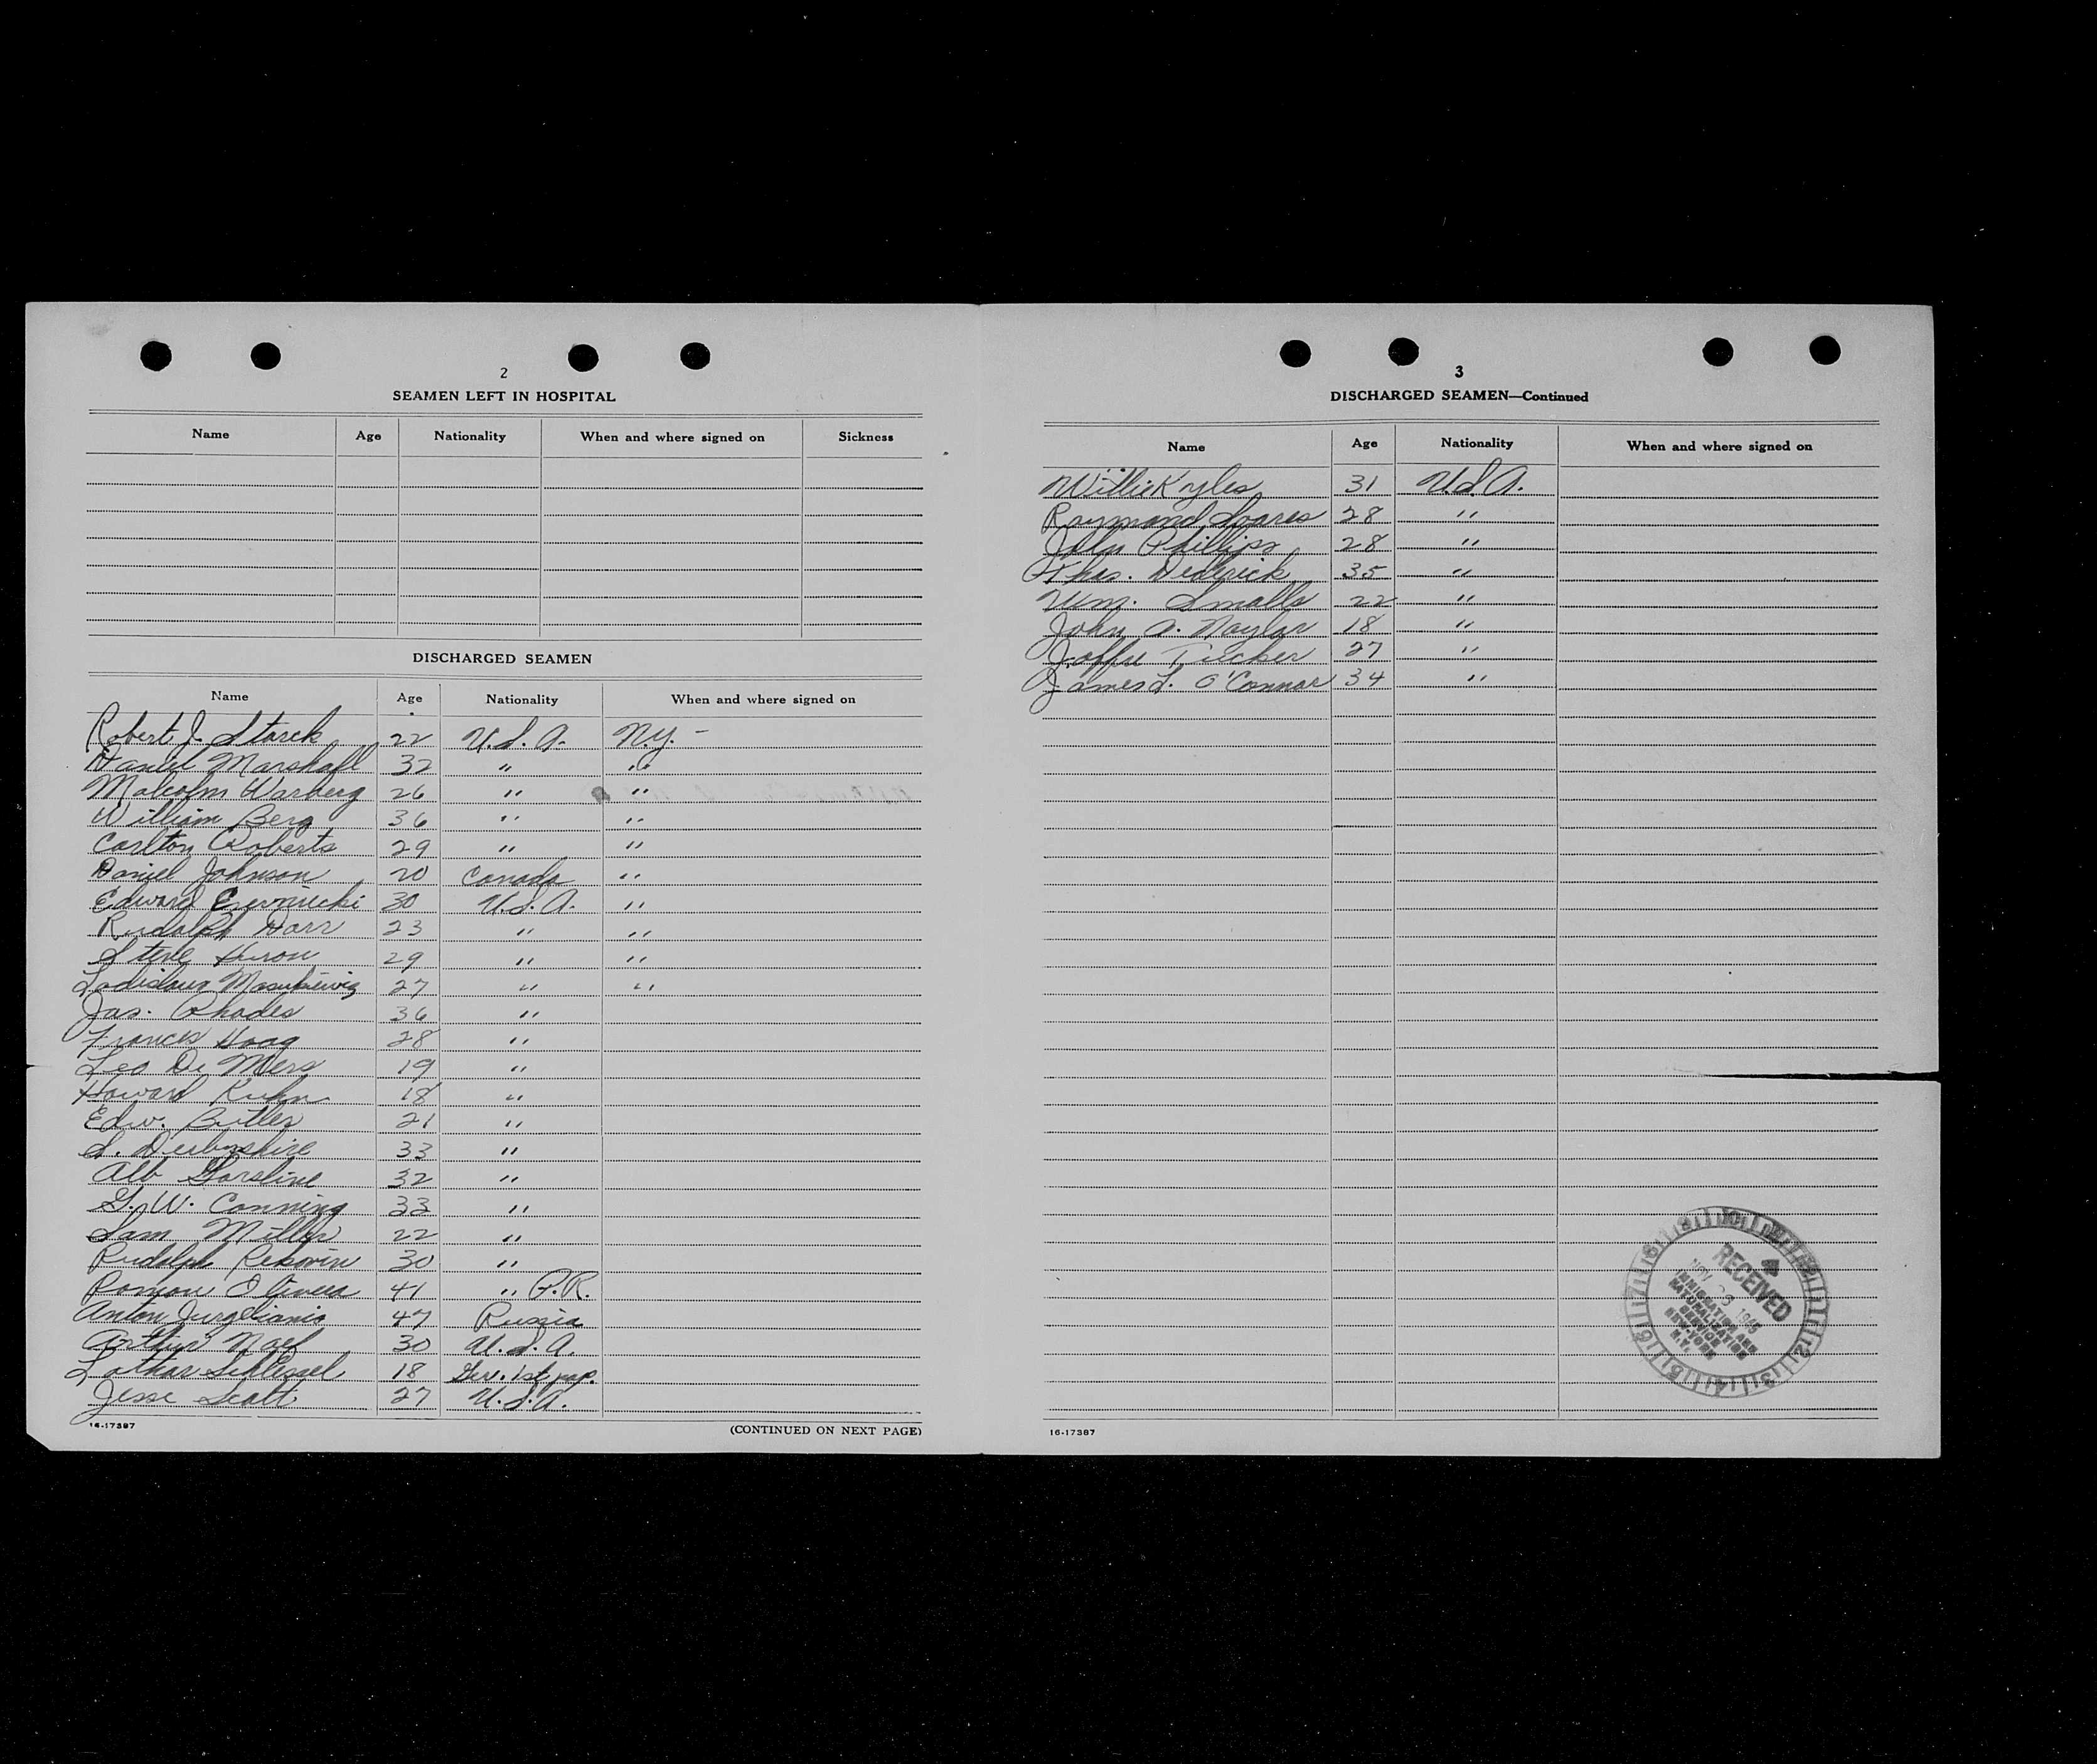 2
SEAMEN LEFT IN HOSPITAL
Name Age Nationality When and where signed on Sickness
DISCHARGED SEAMEN
Name Age Nationality When and where signed on
Robert J. Starck 22 U.S.A. N.Y. -
Daniel Marshall 32 " "
Malcolm Warberg 26 " "
William Berg 36 " "
Carlton Roberts 29 " "
Daniel Johnson 20 Canada "
Edward 30 U.S.A. "
Rudolph Darr 23 " "
Steve Huron 29 " "
Ladislaus 27 " "
Jas. Rhodes 36 "
Frances Hoag 28 "
Leo De Mers 19 "
Howard Kuhn 18 "
Edw. Butler 21 "
S. Derbyshire 33 "
Alb Gorsline 32 "
G. W. Canning 33 "
Sam Miller 22 "
Rudolph 30 "
Ramon Olivera 41 " P.R.
Anton 47 Russia
Arthur Naef 30 U.S.A.
Lothar Schlessel 18 Ger. 1st pap.
Jesse Scott 27 U.S.A.
16-17387
(CONTINUED ON NEXT PAGE)
3
DISCHARGED SEAMEN—Continued
Name Age Nationality When and where signed on
Willie Kyles 31 U.S.A.
Raymond Soares 28 "
John Phillips 28 "
Thos. Dederick 35 "
Wm. Smalls 22 "
John A. Naylor 18 "
Joffre Tucker 27 "
James L. O'Connor 34 "
RECEIVED
NOV 1945
IMMIGRATION AND
NATURALIZATION
SERVICE
NEW YORK
N.Y.
16-17387